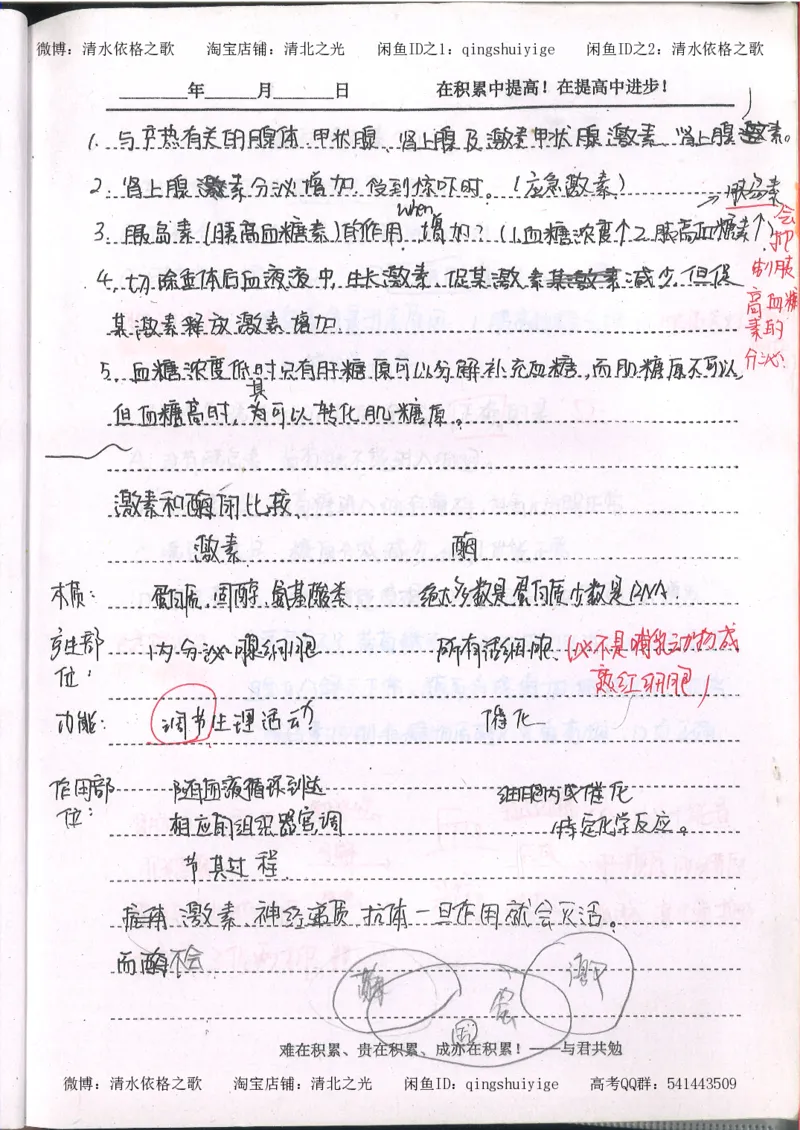 微博：清水依格之歌 淘宝店铺：清北之光 闲鱼ID之1：qingshuiyige 闲鱼ID之2：清水依格之歌
年 月 日 在积累中提高！在提高中进步！
1. 与产热有关的腺体 甲状腺、肾上腺及激素甲状腺激素、肾上腺激素。
2. 肾上腺激素分泌增加.受到惊吓时。（应急激素）
→胰岛素会抑制胰高血糖素的分泌.
when
3. 胰岛素(胰高血糖素)的作用.增加？(1.血糖浓度个2.胰高血糖素个)
4. 切除垂体后血液液中，生长激素、促某激素减少，但促
某激素释放激素增加.
5. 血糖浓度低时只有肝糖原可以分解补充血糖，而肌糖原不可以，
但血糖高时，其为可以转化肌糖原。
激素和酶的比较.
激素 酶
本质： 蛋白质，固醇，氨基酸类 绝大多数是蛋白质少数是RNA
产生部位： 内分泌腺细胞 所有活细胞.(必不是哺乳动物成
熟红细胞)
功能： 调节生理活动 催化
作用部位： 随血液循环到达 细胞内或催化
相应的组织器官调 特定化学反应。
节其过程.
激素、神经递质 抗体一旦作用就会灭活。
而酶不会
酶 蛋 激
固
难在积累、贵在积累、成亦在积累！——与君共勉
微博：清水依格之歌 淘宝店铺：清北之光 闲鱼ID：qingshuiyige 高考QQ群：541443509